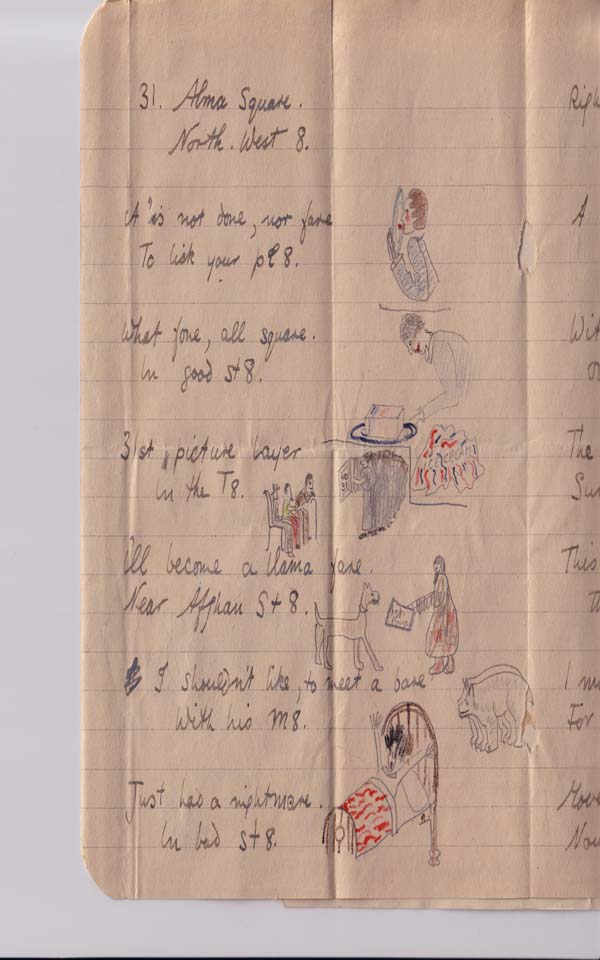 31. Alma Square.
North. West 8.
is not done, nor fare
To lick your pl8.
What fone, all square.
In good st8.
31st picture
In the T8.
ICE CREAM
I'll become a llama fare.
Near Affghan St8.
I shouldn't like, to meet a bare
With his M8.
Just has a nightmare.
In bad st8.
A
The
This
For